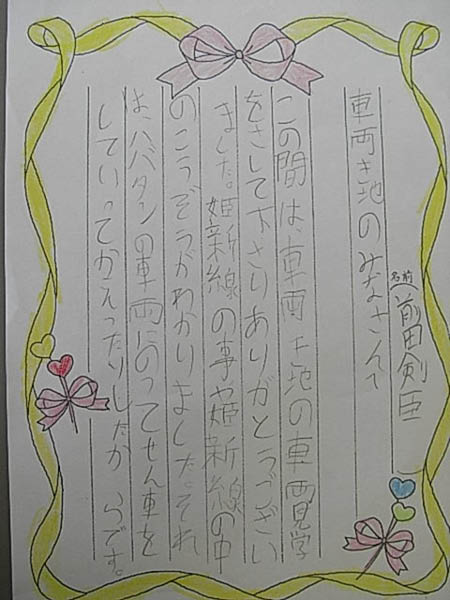 車両き地のみなさんへ
名前 前田剣臣
この間は、車両き地の車両見学
をさして下さりありがとうござい
ました。姫新線の事や姫新線の中
のこうぞうがわかりました。それ
は、ハバタンの車両にのってせん車を
していってかえったりしたからです。